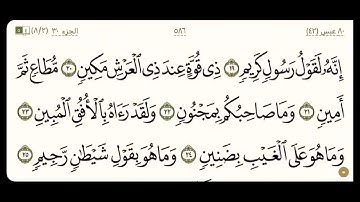 ٨٠ عبس (٤٢) ٥٨٦ الجزء ٣٠ (٨/٢)
إِنَّهُۥ لَقَوْلُ رَسُولٍ كَرِيمٍ ١٩ ذِى قُوَّةٍ عِندَ ذِى ٱلْعَرْشِ مَكِينٍ ٢٠ مُّطَاعٍ ثَمَّ
أَمِينٍ ٢١ وَمَا صَاحِبُكُم بِمَجْنُونٍ ٢٢ وَلَقَدْ رَءَاهُ بِٱلْأُفُقِ ٱلْمُبِينِ ٢٣
وَمَا هُوَ عَلَى ٱلْغَيْبِ بِضَنِينٍ ٢٤ وَمَا هُوَ بِقَوْلِ شَيْطَٰنٍ رَّجِيمٍ ٢٥